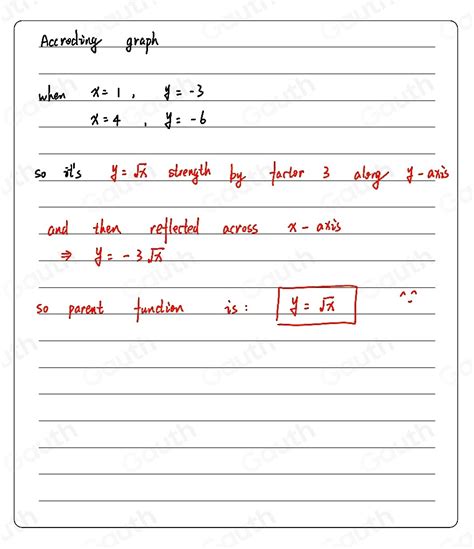 Accroding graph
when x = 1 , y = -3
x = 4 , y = -6
so it's y = √x stength by factor 3 along y - axis
and then reflected across x - axis
⇒ y = - 3 √x
so parent function is : y = √x ^_^